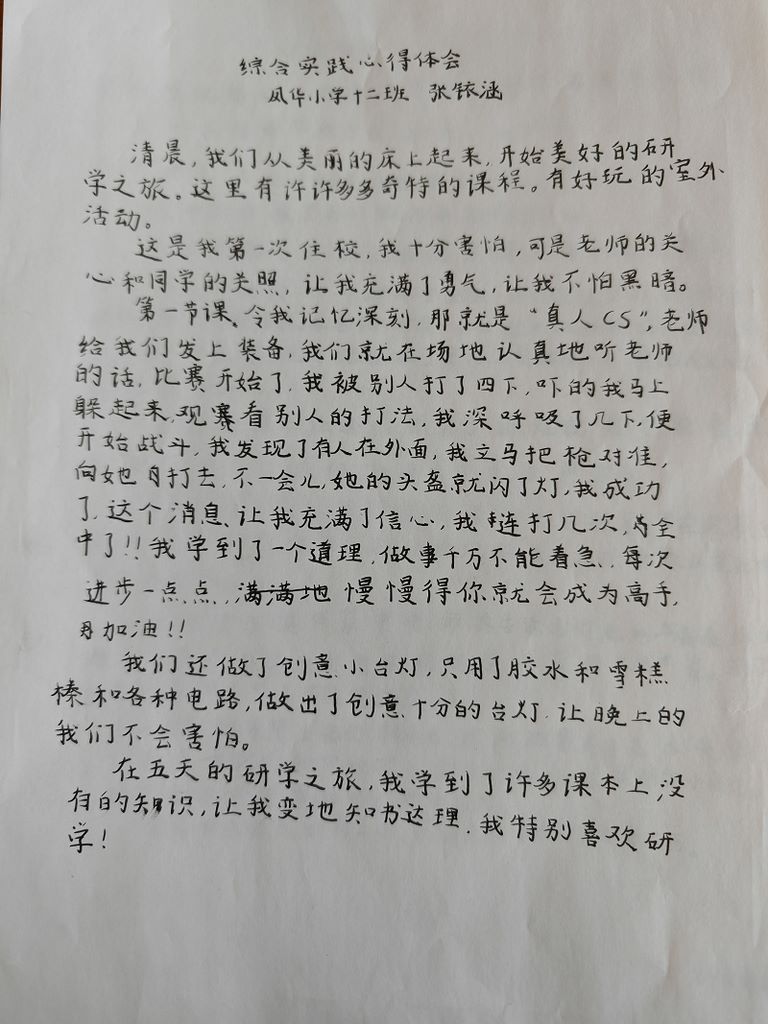 综合实践心得体会
风华小学十二班 张铱涵
清晨,我们从美丽的床上起来,开始美好的研
学之旅。这里有许许多多奇特的课程。有好玩的室外
活动。
这是我第一次住校,我十分害怕,可是老师的关
心和同学的关照,让我充满了勇气,让我不怕黑暗。
第一节课、令我记忆深刻,那就是“真人CS”,老师
给我们发上装备,我们就在场地认真地听老师
的话,比赛开始了,我被别人打了四下,吓的我马上
躲起来,观赛看别人的打法,我深呼吸了几下,便
开始战斗,我发现了有人在外面,我立马把枪对准,
向她打去,不一会儿,她的头盔就闪了灯,我成功
了,这个消息、让我充满了信心,我连打几次,全
中了!!我学到了一个道理,做事千万不能着急、每次
进步一点点,满满地 慢慢得你就会成为高手,
加油!!
我们还做了创意小台灯,只用了胶水和雪糕
榛和各种电路,做出了创意十分的台灯,让晚上的
我们不会害怕。
在五天的研学之旅,我学到了许多课本上没
有的知识,让我变地知书达理,我特别喜欢研
学!